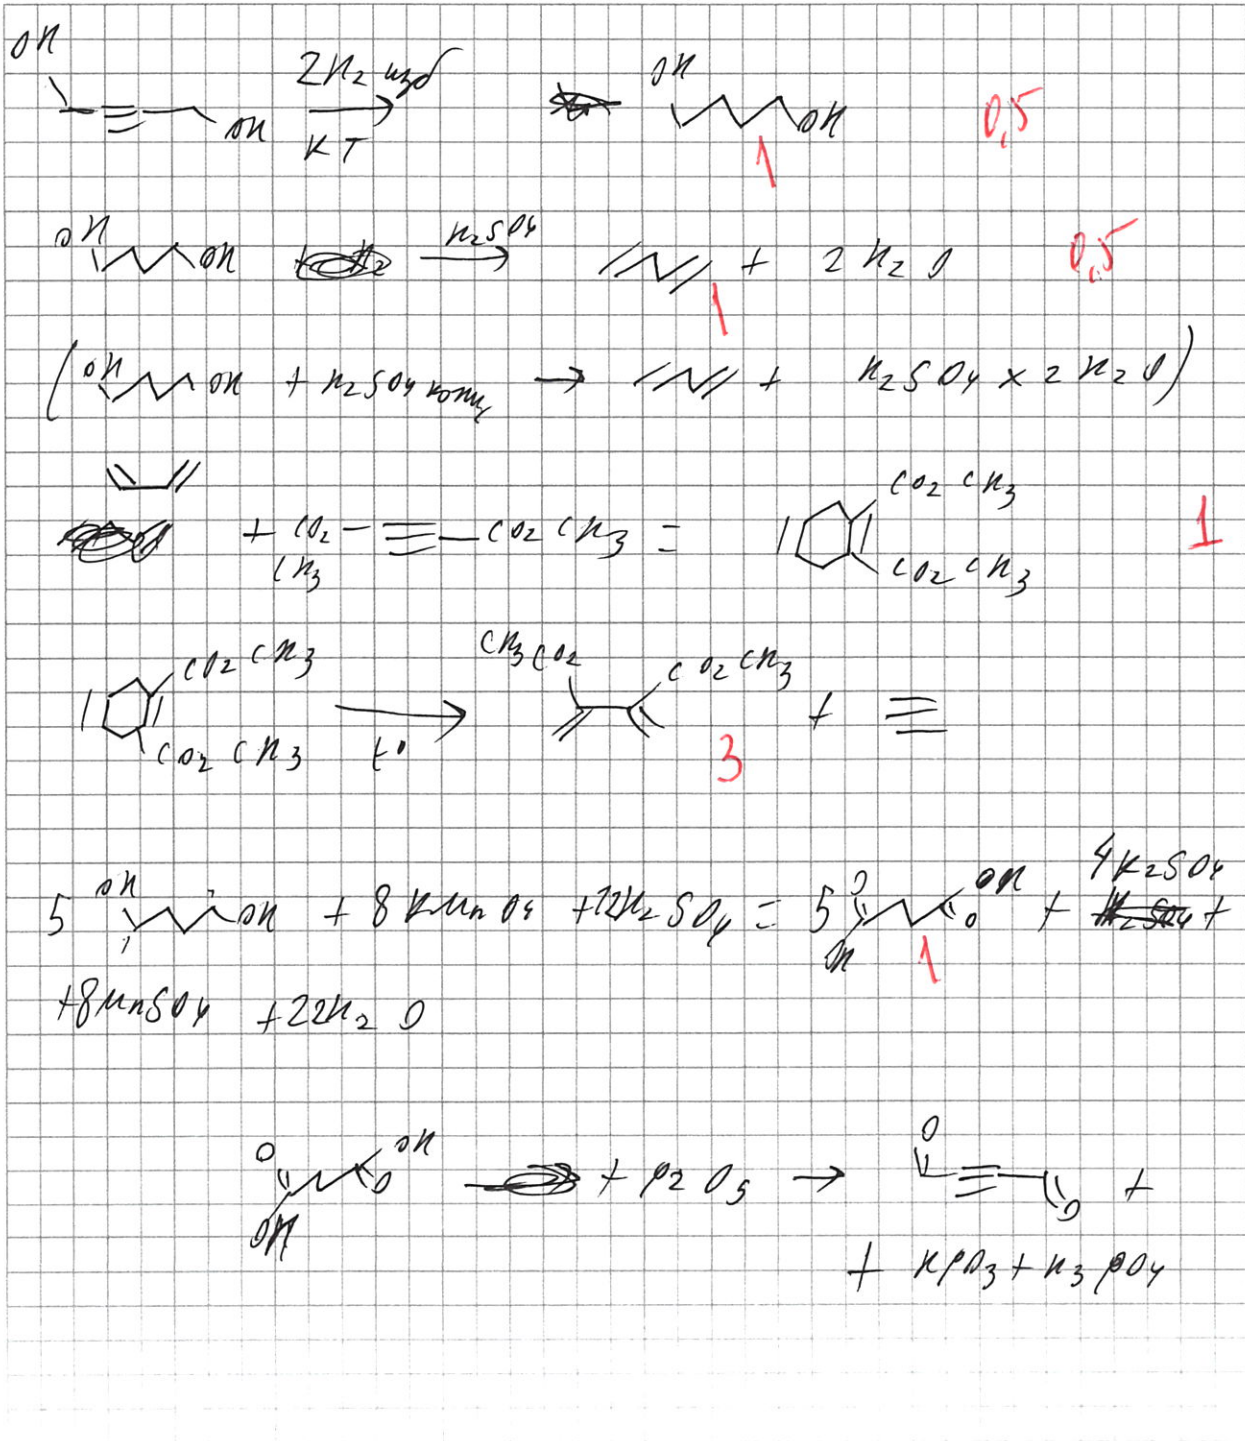 OH ≡ OH 2H2 изб КТ → OH OH 1 0,5
OH OH H2SO4 → + 2 H2O 1 0,5
( OH OH + H2SO4 конц → + H2SO4 x 2 H2O )
+ CO2 CH3 – ≡ – CO2 CH3 = CO2 CH3 CO2 CH3 1
CO2 CH3 CO2 CH3 t° → CH3 CO2 CO2 CH3 3 + ≡
5 OH OH + 8 KMnO4 + 12H2SO4 = 5 O OH OH O 1 + 4K2SO4 +
+8MnSO4 + 22H2O
O OH OH O + P2O5 → O ≡ O +
+ HPO3 + H3PO4